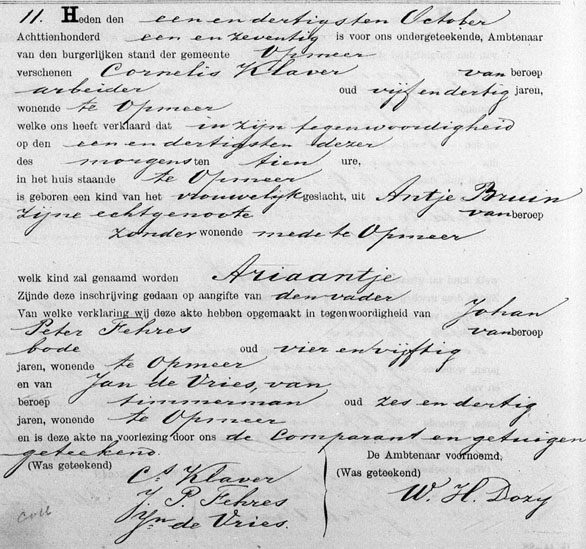 11. Heden den een en dertigsten October
Achttienhonderd een en zeventig is voor ons ondergeteekende, Ambtenaar
van den burgerlijken stand der gemeente Opmeer
verschenen Cornelis Klaver van beroep
arbeider oud vijf en dertig jaren,
wonende te Opmeer
welke ons heeft verklaard dat in zijn tegenwoordigheid
op den een en dertigsten dezer
des morgens ten tien ure,
in het huis staande te Opmeer
is geboren een kind van het vrouwelijk geslacht, uit Antje Bruin
zijne echtgenoote van beroep
zonder wonende mede te Opmeer
welk kind zal genaamd worden Ariaantje
Zijnde deze inschrijving gedaan op aangifte van den vader
Van welke verklaring wij deze akte hebben opgemaakt in tegenwoordigheid van Johan
Peter Fehres van beroep
bode oud vier en vijftig
jaren, wonende te Opmeer
en van Jan de Vries, van
beroep timmerman oud zes en dertig
jaren, wonende te Opmeer
en is deze akte na voorlezing door ons de Comparant en getuigen
geteekend.
(Was geteekend)
Cs. Klaver
J. P. Fehres
Jn de Vries.
De Ambtenaar voornoemd,
(Was geteekend)
W. H. Dozy
Coll